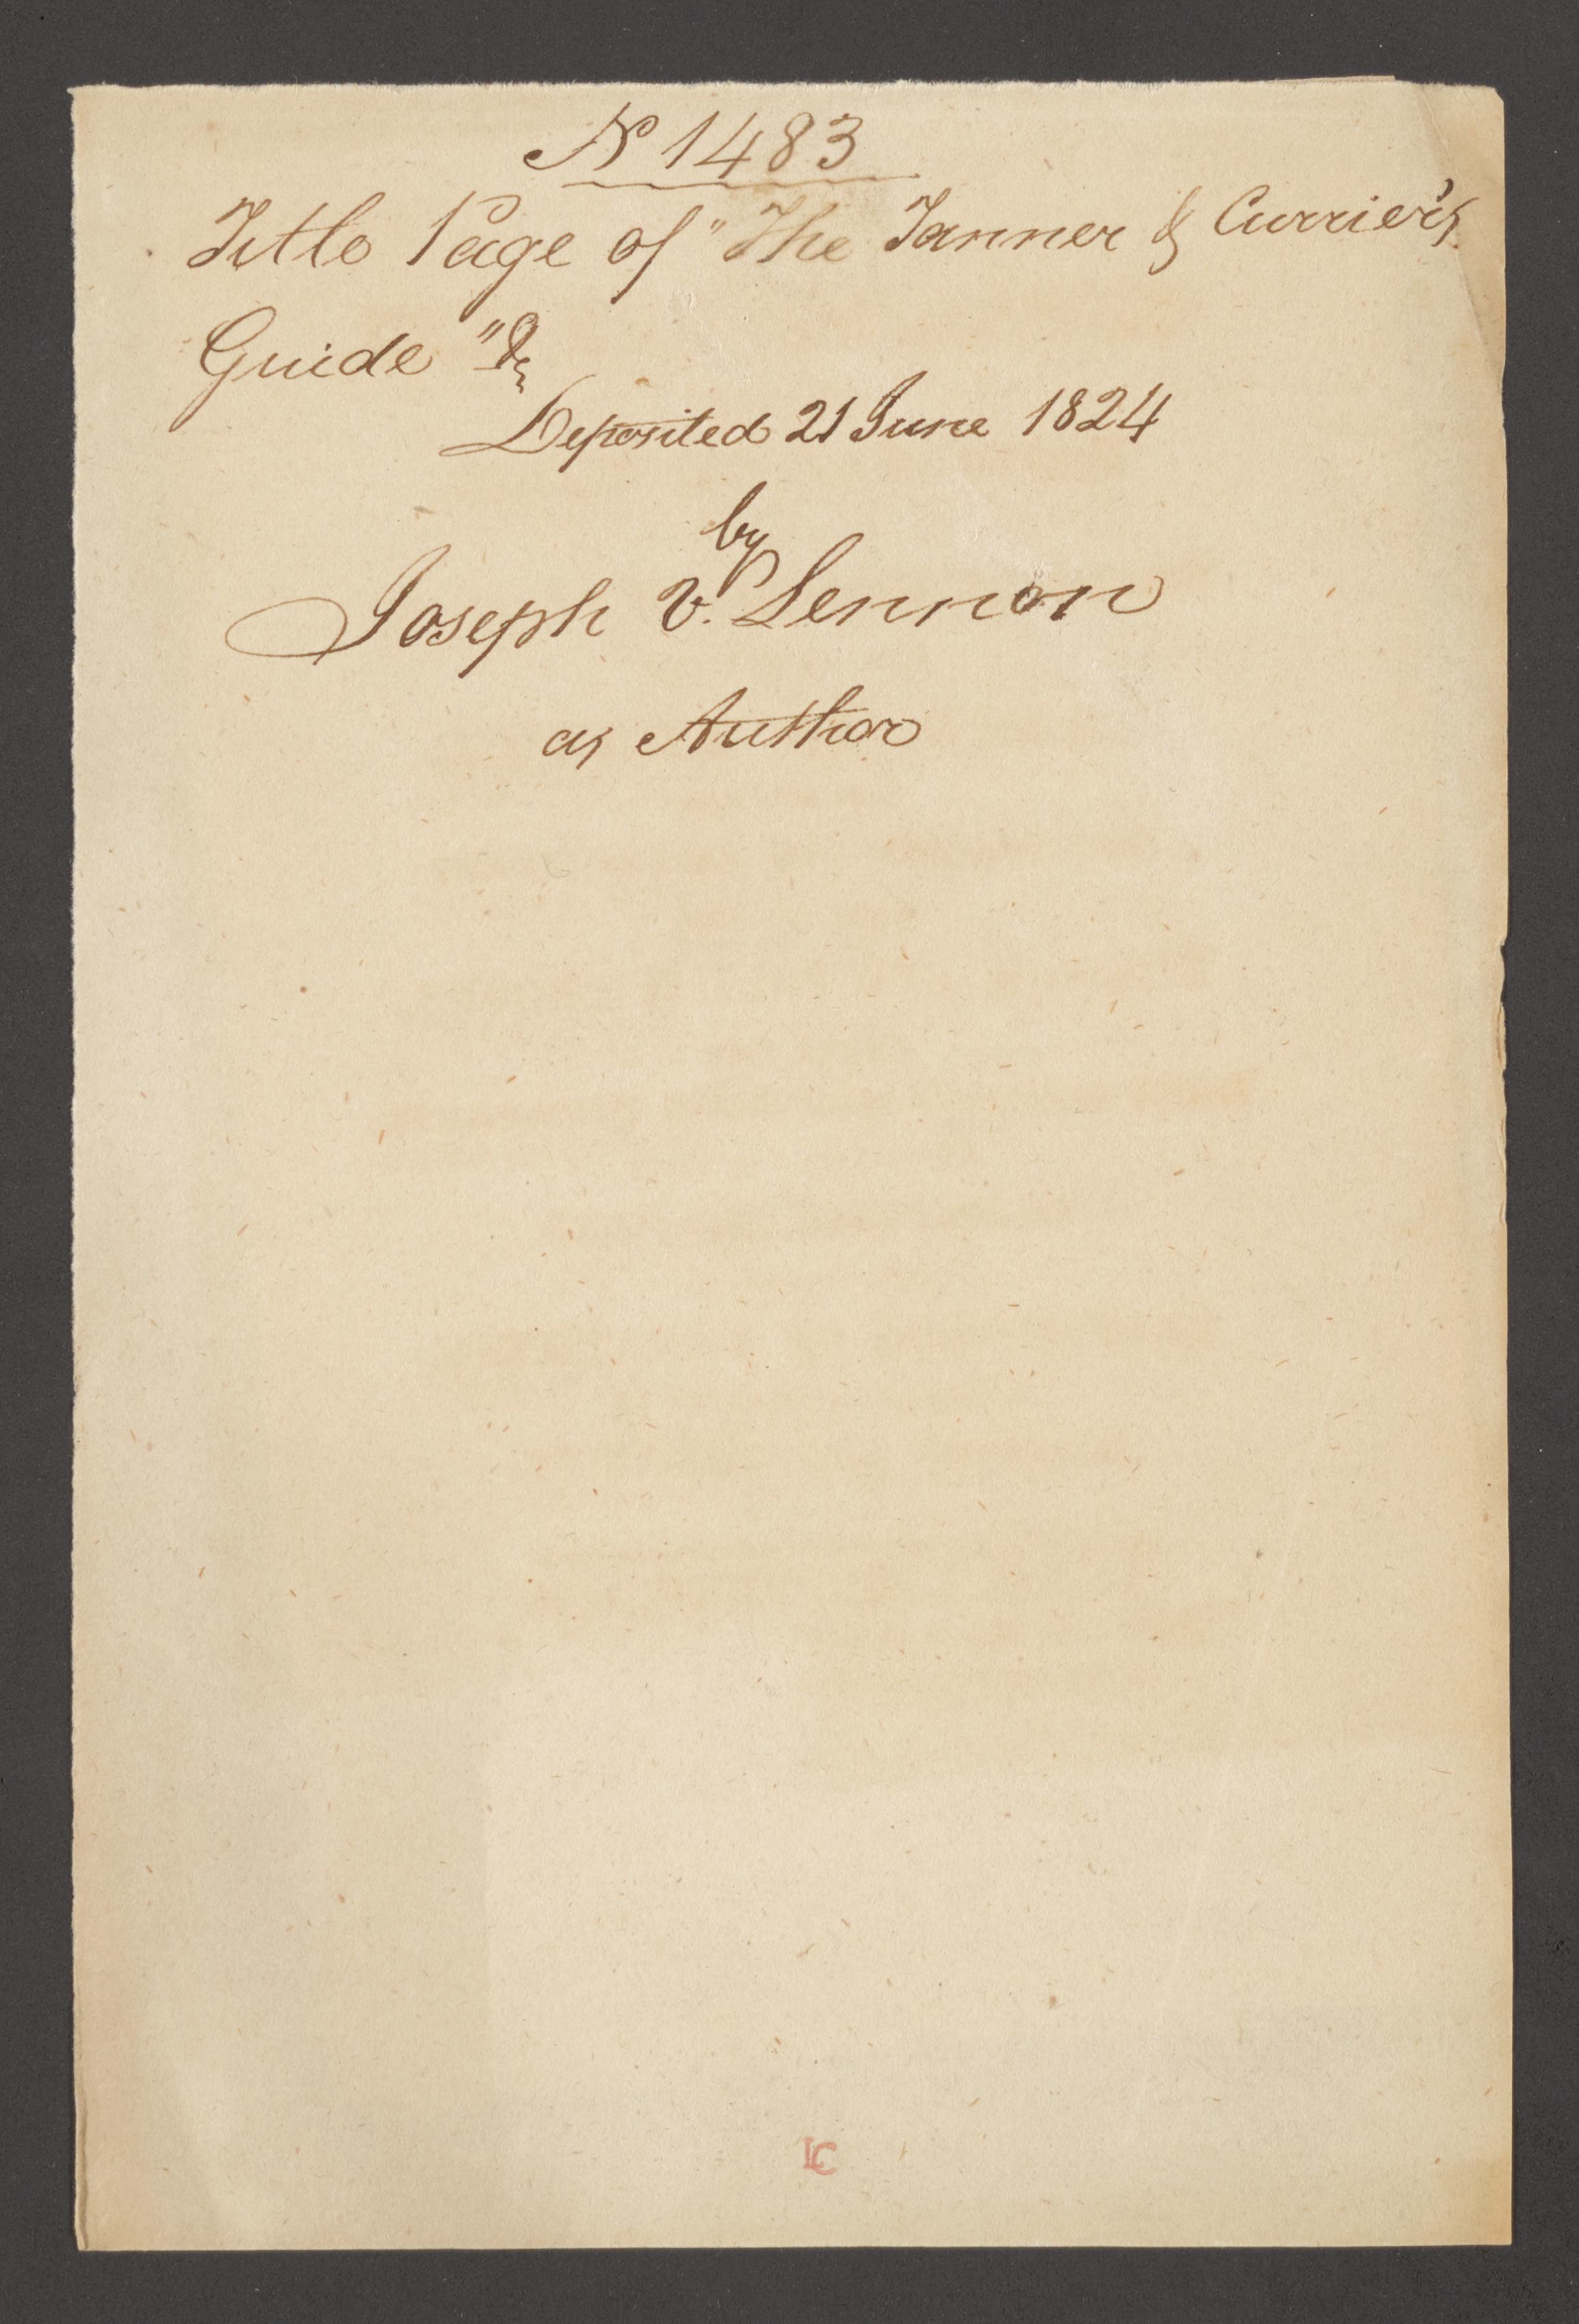 No 1483
Title Page of "The Tanner & Currier's
Guide" &c
Deposited 21 June 1824
by
Joseph V. Lennon
as Author
LC